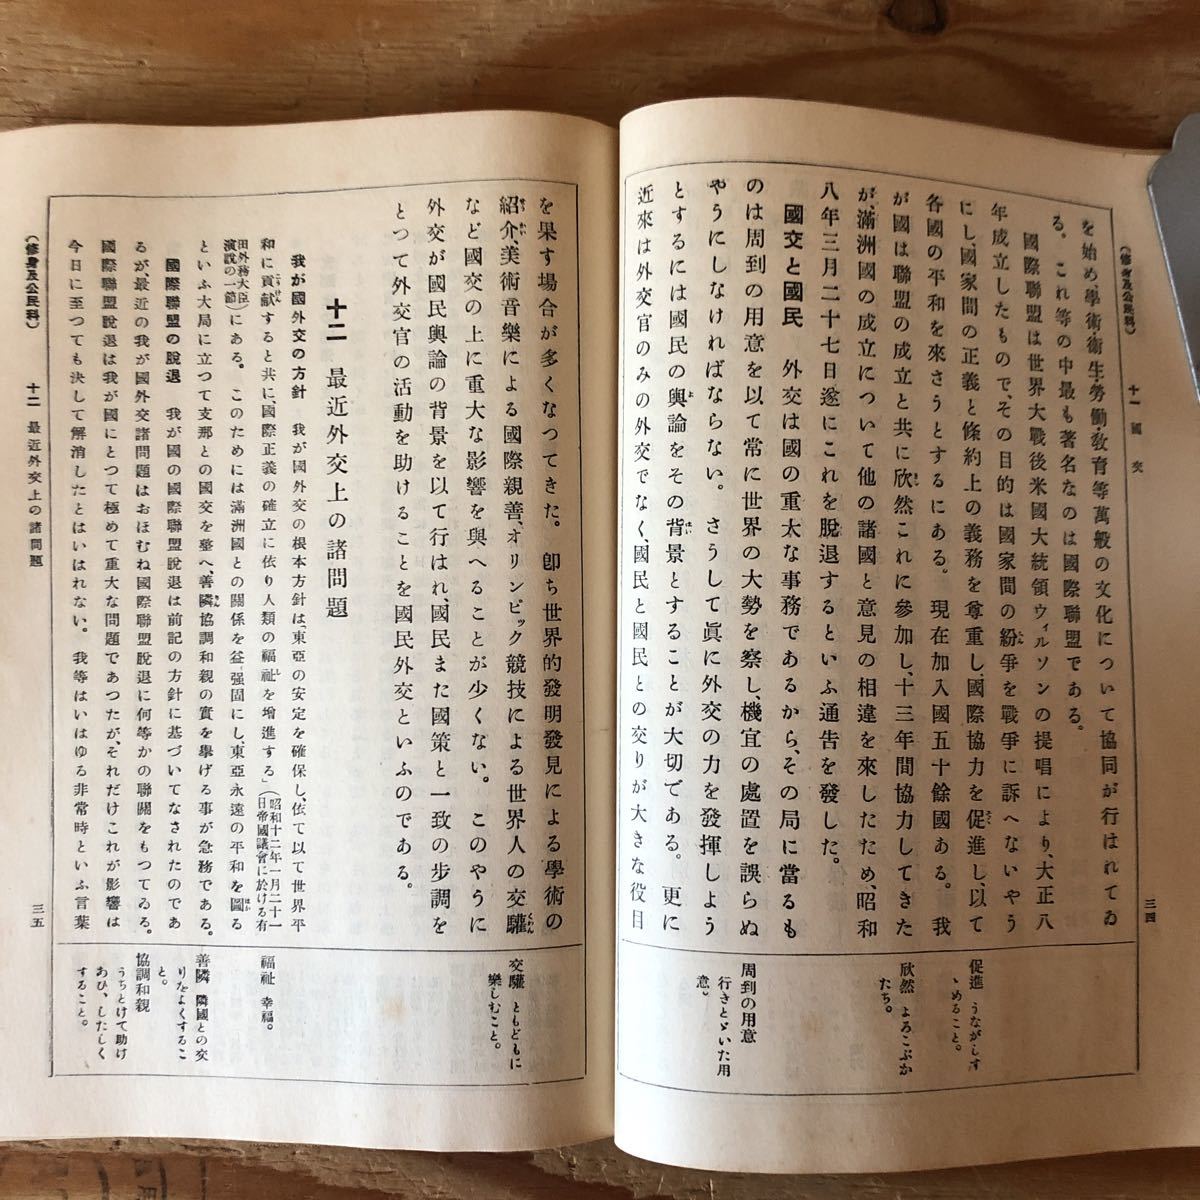 (修身及公民科) 十一 國交 三四
を始め、學術・衞生・勞働・敎育等萬般の文化について協同が行はれてゐ
る。これ等の中最も著名なのは國際聯盟である。
國際聯盟は世界大戰後米國大統領ウィルソンの提唱により、大正八
年成立したもので、その目的は國家間の紛爭を戰爭に訴へないやう
にし、國家間の正義と條約上の義務を尊重し、國際協力を促進し、以て
各國の平和を來さうとするにある。現在加入國五十餘國ある。我
が國は聯盟の成立と共に欣然これに參加し、十三年間協力してきた
が、滿洲國の成立について他の諸國と意見の相違を來したため、昭和
八年三月二十七日遂にこれを脫退するといふ通告を發した。
國交と國民 外交は國の重大な事務であるから、その局に當るも
のは周到の用意を以て常に世界の大勢を察し、機宜の處置を誤らぬ
やうにしなければならない。さうして眞に外交の力を發揮しよう
とするには國民の輿論をその背景とすることが大切である。更に
近來は外交官のみの外交でなく、國民と國民との交りが大きな役目
促進 うながしす
ゝめること。
欣然 よろこぶか
たち。
周到の用意
行きとゞいた用
意。
を果す場合が多くなつてきた。卽ち世界的發明發見による學術の
紹介、美術音樂による國際親善、オリンピック競技による世界人の交驩
など國交の上に重大な影響を與へることが少くない。このやうに
外交が國民輿論の背景を以て行はれ、國民また國策と一致の步調を
とつて外交官の活動を助けることを國民外交といふのである。
十二 最近外交上の諸問題
我が國外交の方針 我が國外交の根本方針は、「東亞の安定を確保し、依て以て世界平
和に貢獻すると共に、國際正義の確立に依り人類の福祉を增進する」(昭和十二年一月二十一
日帝國議會に於ける有
田外務大臣
演說の一節)にある。このためには滿洲國との關係を益〻强固にし、東亞永遠の平和を圖る
といふ大局に立つて支那との國交を整へ、善隣協調和親の實を擧げる事が急務である。
國際聯盟の脫退 我が國の國際聯盟脫退は前記の方針に基づいてなされたのであ
るが、最近の我が國外交諸問題はおほむね國際聯盟脫退に何等かの聯關をもつてゐる。
國際聯盟脫退は我が國にとつて極めて重大な問題であつたが、それだけこれが影響は
今日に至つても決して解消したとはいはれない。我等はいはゆる非常時といふ言葉
交驩 ともどもに
樂しむこと。
福祉 幸福。
善隣 隣國との交
りをよくするこ
と。
協調和親
うちとけて助け
あひ、したしく
すること。
(修身及公民科) 十二 最近外交上の諸問題 三五